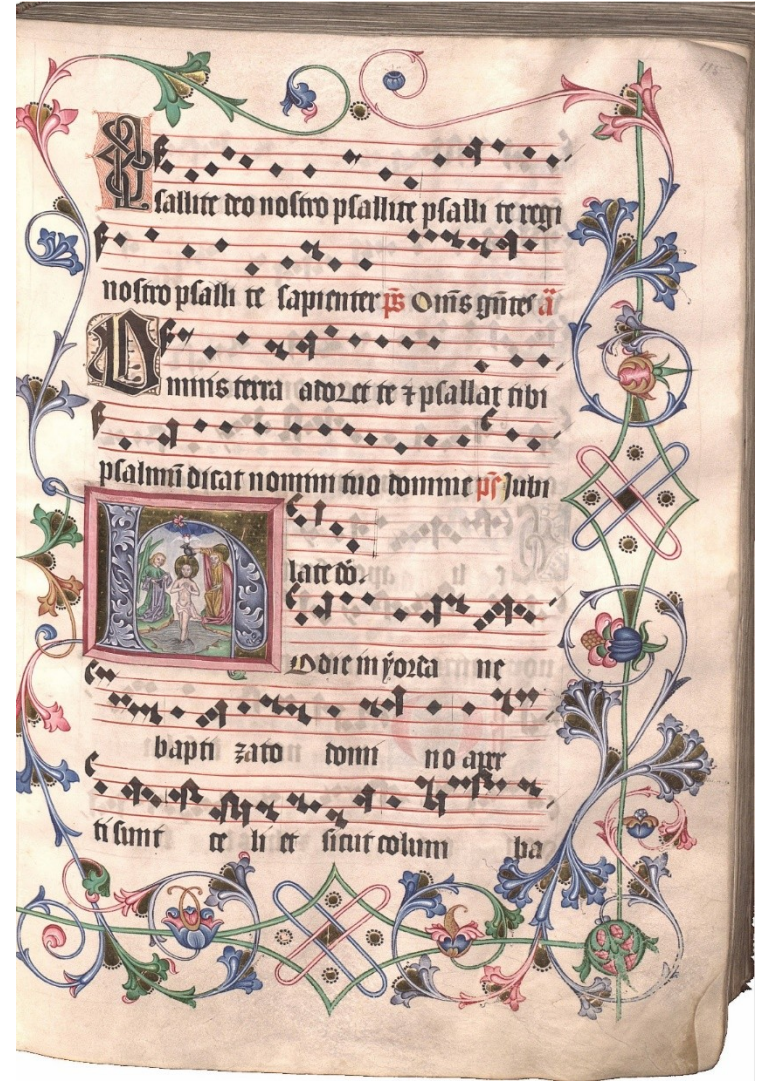 115
Psallite deo nostro psallite psalli te regi
nostro psalli te sapienter p̄s Om̄s gn̄tes a͞
Omnis terra adoret te ⁊ psallat tibi
psalmū dicat nomini tuo domine p̄s Jubi
late dō.
Hodie in yorda ne
bapti zato domi no aper
ti sunt ce li et sicut colum ba